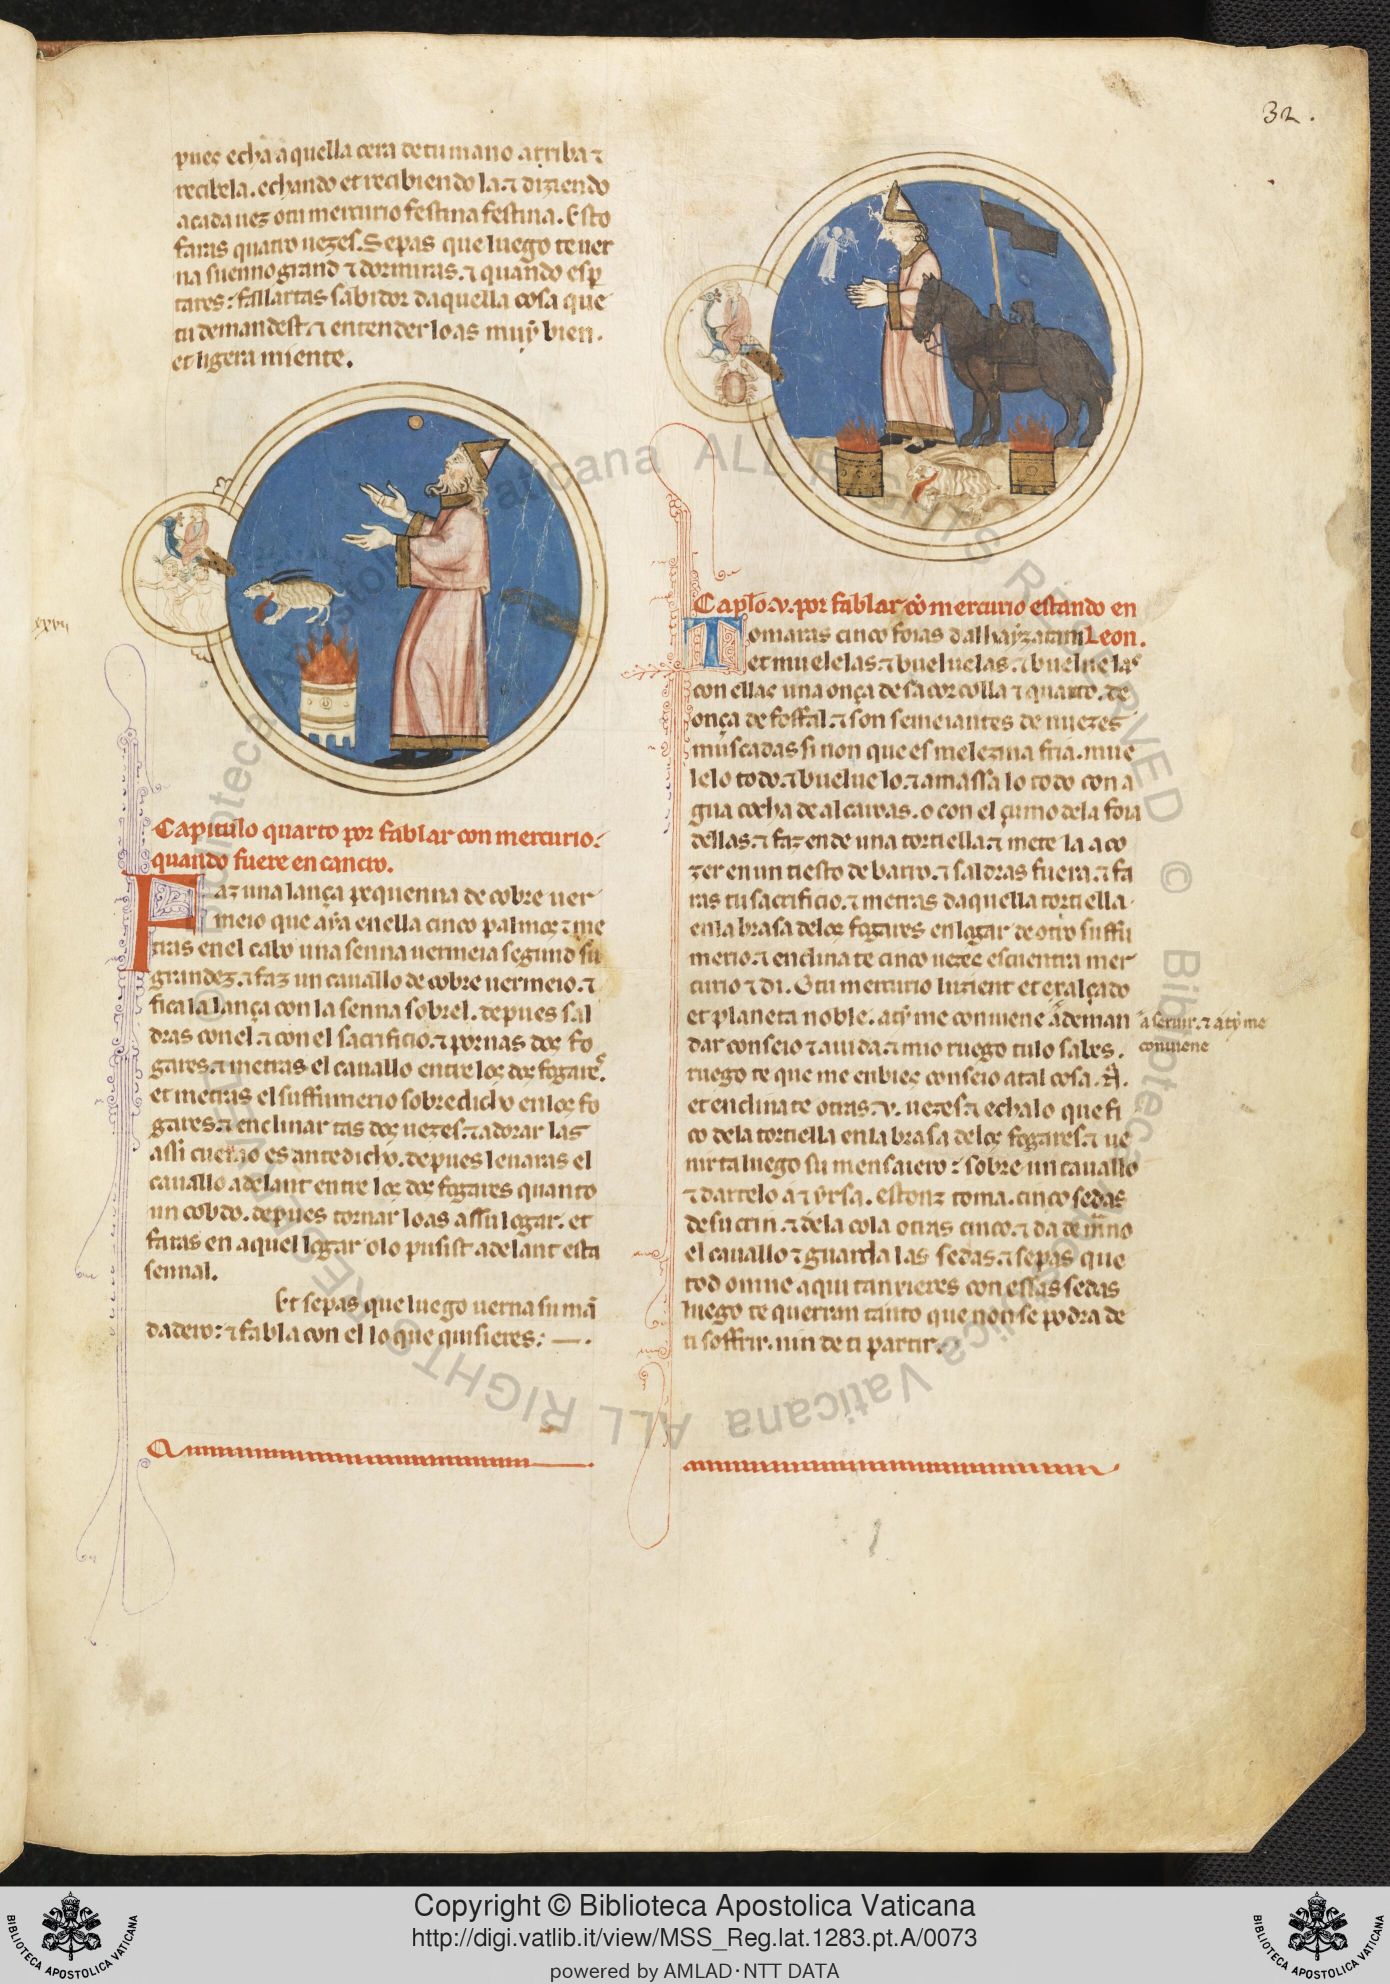 32.
pues echa aquella cera de tu mano arriba ⁊
recibela. echando et recibiendo la. ⁊ diziendo
a cada uez o tu mercurio festina festina. Esto
faras quatro uezes. Sepas que luego te uer
na suenno grand ⁊ dormiras. ⁊ quando esp
tares: fallartas sabidor daquella cosa que
tu demandest. ⁊ entender lo as muy bien.
et ligera miente.
xxvij
Capitulo quarto por fablar con mercurio:
quando fuere en cancro.
Faz una lança pequenna de cobre uer
meio que aya en ella cinco palmos ⁊ me
tras en el cabo una senna uermeia segund su
grandez. ⁊ faz un cauallo de cobre uermeio. ⁊
fica la lança con la senna sobrel. depues sal
dras con el ⁊ con el sacrificio. ⁊ pornas dos fo
gares. ⁊ metras el cauallo entre los dos fogares.
et metras el suffumerio sobredicho en los fo
gares. ⁊ enclinar tas dos uezes. ⁊ adorar las
assi cuemo es ante dicho. depues leuaras el
cauallo adelant entre los dos fogares quanto
un cobdo. depues tornar lo as assu logar. et
faras en aquel logar o lo pusist adelant esta
sennal.
Et sepas que luego uerna su mã
dadero: ⁊ fabla con el lo que quisieres: —.
Capło .v. por fablar cõ mercurio estando en
Tomaras cinco foias dalhayzaran Leon.
et muelelas. ⁊ bueluelas. ⁊ buelue las
con ellas una onça de sacorcolla ⁊ quarto. de
onça de foffal. ⁊ son semeiantes de nuezes
muscadas si non que es melezina fria. mue
lelo todo. ⁊ buelue lo. ⁊ amassa lo todo con a
gua cocha de alcauras. o con el çumo dela foia
dellas. ⁊ faz ende una tortiella. ⁊ mete la a co
zer en un tiesto de barro. ⁊ saldras fuera. ⁊ fa
ras tu sacrificio. ⁊ metras daquella tortiella.
en la brasa delos fogares en logar de otro suffu
merio. ⁊ enclina te cinco uezes escuentra mer
curio ⁊ di. O tu mercurio luzient et exalçado
et planeta noble. a ty me conuiene a deman
a seruir. ⁊ a ty me
conuiene
dar conseio ⁊ aiuda. ⁊ mio ruego tu lo sabes.
ruego te que me enbies conseio a tal cosa. A.
et enclina te otras .v. uezes. ⁊ echa lo que fi
co dela tortiella en la brasa delos fogares. ⁊ ue
nir ta luego su mensaiero: sobre un cauallo
⁊ dar telo a
estonz toma. cinco sedas
de su crin. ⁊ dela cola otras cinco. ⁊ da de mano
el cauallo ⁊ guarda las sedas. ⁊ sepas que
tod omne aqui tanxieres con essas sedas
luego te querran tanto que non se podra de
ti soffrir. nin de ti partir.
Copyright © Biblioteca Apostolica Vaticana
http://digi.vatlib.it/view/MSS_Reg.lat.1283.pt.A/0073
powered by AMLAD·NTT DATA
BIBLIOTECA APOSTOLICA VATICANA
BIBLIOTECA APOSTOLICA VATICANA